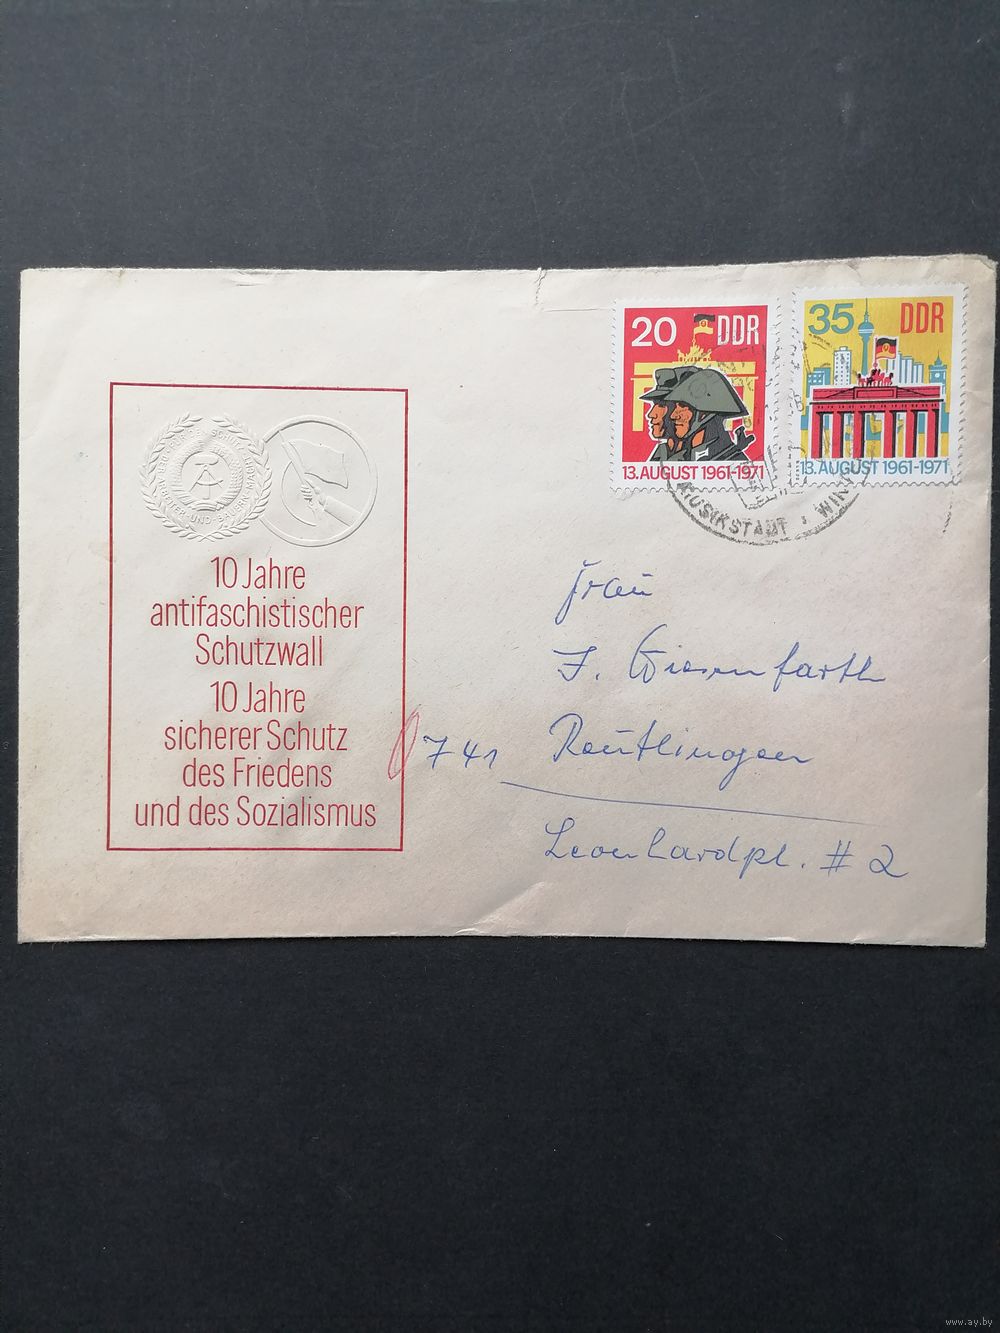 20 DDR
13.AUGUST 1961-1971
35 DDR
13.AUGUST 1961-1971
MUSIKSTADT
10 Jahre
antifaschistischer
Schutzwall
10 Jahre
sicherer Schutz
des Friedens
und des Sozialismus
Frau
J. Giesenfarth
741 Reutlingen
Leonhardpl. # 2
www.ay.by